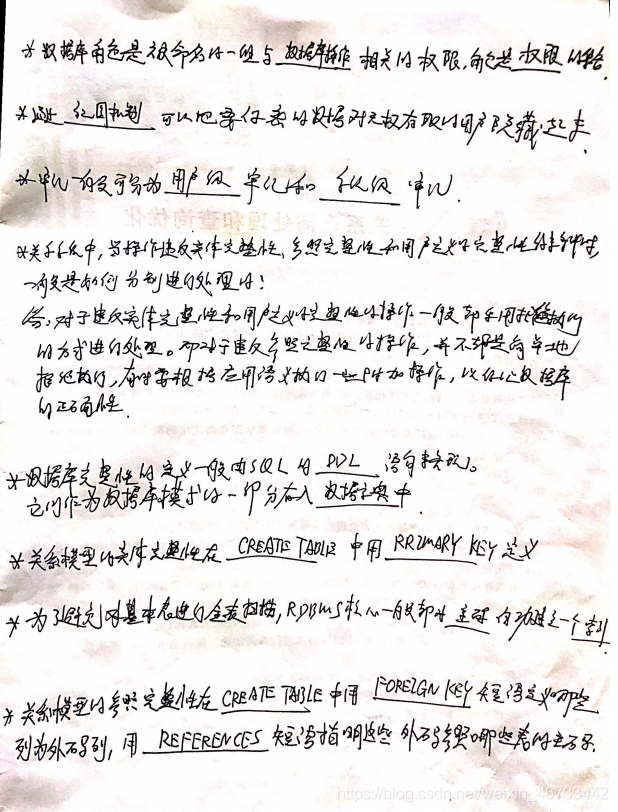 *数据库角色是被命名的一组与数据库操作相关的权限,角色是权限的集合.
*通过 视图机制 可以把要保密的数据对无权存取的用户隐藏起来.
*审计一般可分为 用户级 审计和 系统级 审计.
*关系系统中,当操作违反实体完整性、参照完整性和用户定义的完整性约束条件时,
一般是如何分别进行处理的:
答:对于违反实体完整性和用户定义的完整性的操作一般都采用拒绝执行
的方式进行处理。而对于违反参照完整性的操作,并不都是简单地
拒绝执行,有时要根据应用语义执行一些附加操作,以保证数据库
的正确性.
*数据库完整性的定义一般由SQL的 DDL 语句来实现。
它们作为数据库模式的一部分存入 数据字典中.
*关系模型的实体完整性在 CREATE TABLE 中用 PRIMARY KEY 定义
*为了避免对基本表进行全表扫描,RDBMS核心一般都对 主码 自动建立一个索引
*关系模型的参照完整性在 CREATE TABLE 中用 FOREIGN KEY 短语定义哪些
列为外码列,用 REFERENCES 短语指明这些外码参照哪些表的主码.
https://blog.csdn.net/weixin_46739442